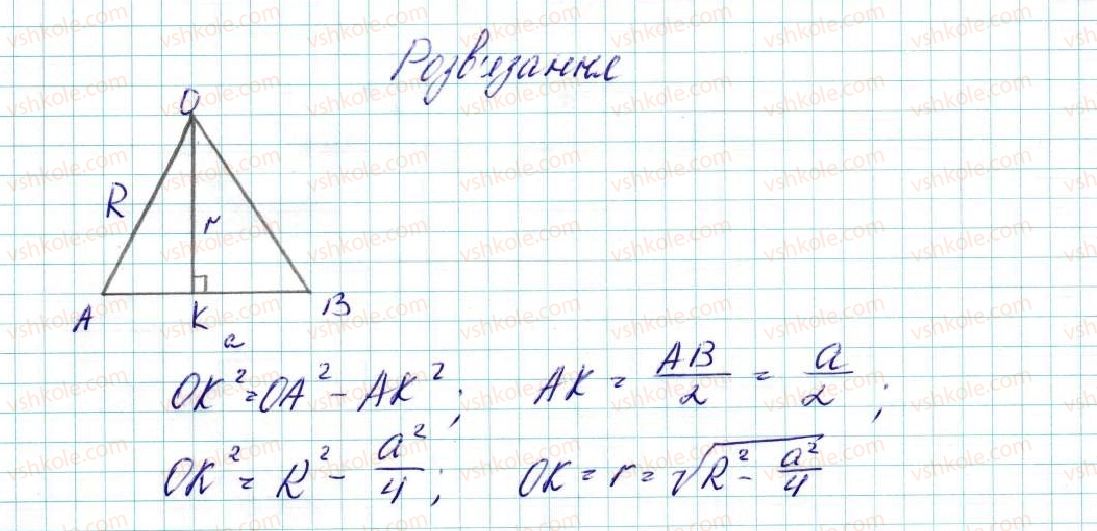 Розв'язання
O
R
r
A K B
a
OK² = OA² - AK²; AK = AB/2 = a/2;
OK² = R² - a²/4; OK = r = √(R² - a²/4)
vshkole.com